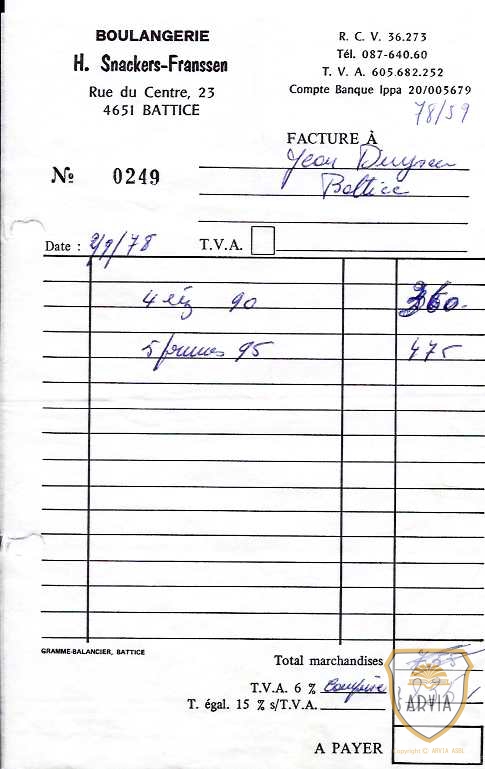 BOULANGERIE
H. Snackers-Franssen
Rue du Centre, 23
4651 BATTICE
R. C. V. 36.273
Tél. 087-640.60
T. V. A. 605.682.252
Compte Banque Ippa 20/005679
78/59
FACTURE À
Jean
Battice
№ 0249
Date : 2/9/78 T.V.A.
4 riz 90 360.-
5 prunes 95 475
GRAMME-BALANCIER, BATTICE
Total marchandises
T.V.A. 6 % Comprise
T. égal. 15 % s/T.V.A.
A PAYER
ARVIA
Copyright © ARVIA ASBL